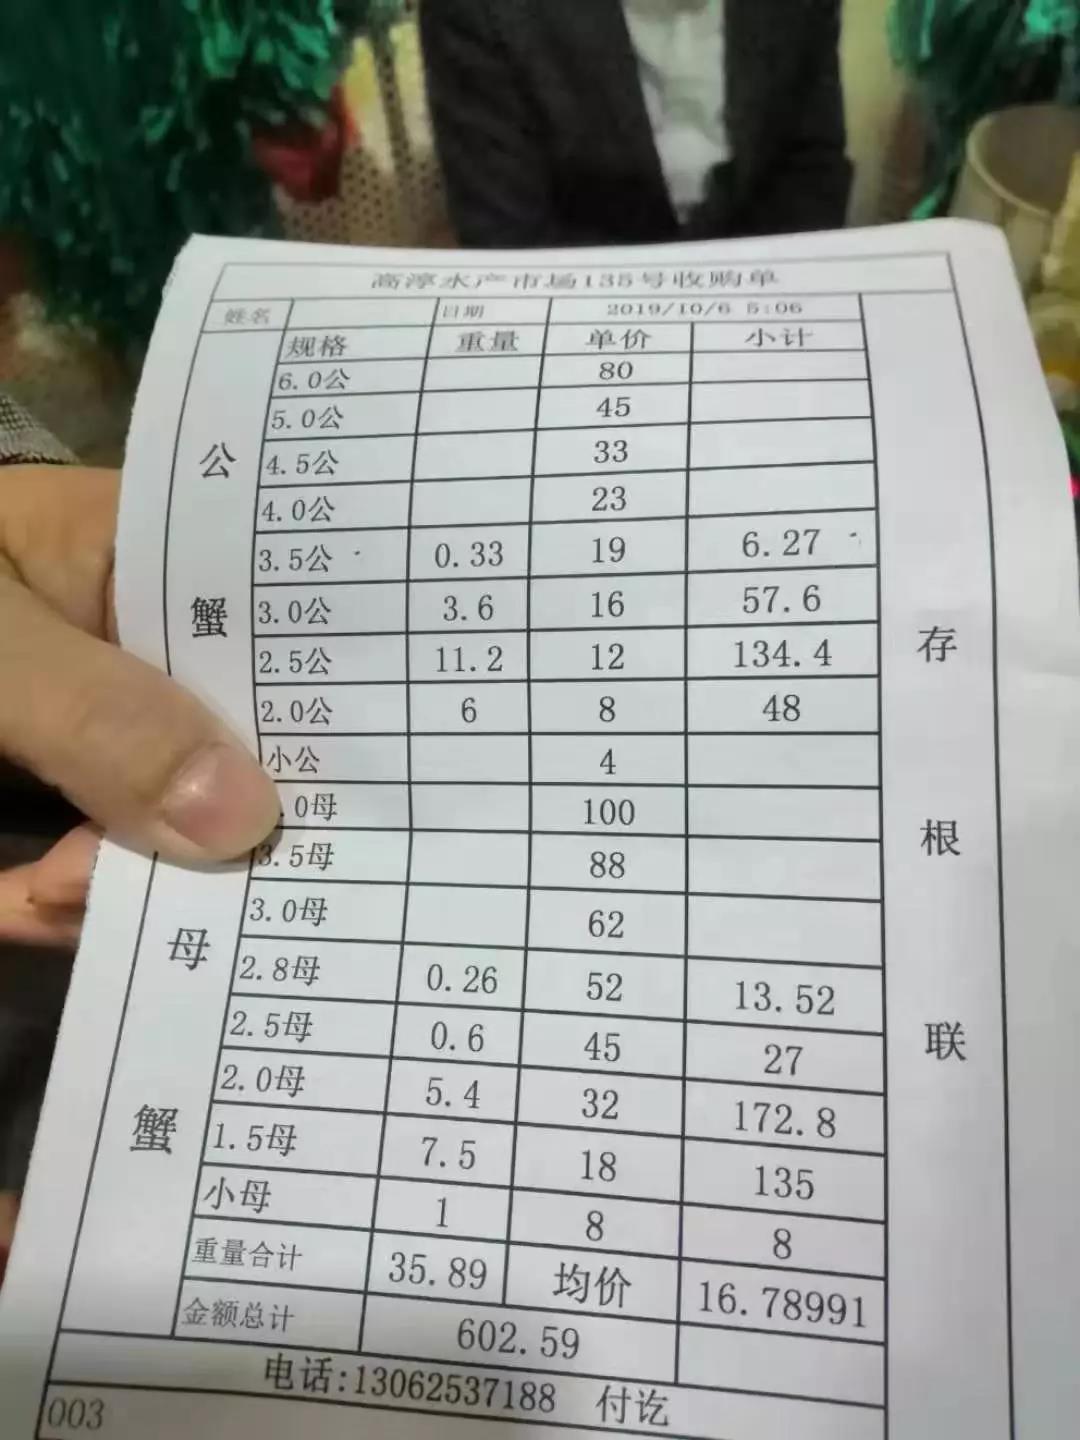 高淳水产市场135号收购单
姓名 日期 2019/10/6 5:06
规格 重量 单价 小计
公蟹
6.0公 80
5.0公 45
4.5公 33
4.0公 23
3.5公 0.33 19 6.27
3.0公 3.6 16 57.6
2.5公 11.2 12 134.4
2.0公 6 8 48
小公 4
母蟹
.0母 100
3.5母 88
3.0母 62
2.8母 0.26 52 13.52
2.5母 0.6 45 27
2.0母 5.4 32 172.8
1.5母 7.5 18 135
小母 1 8 8
重量合计 35.89 均价 16.78991
金额总计 602.59
电话:13062537188 付讫
003
存根联